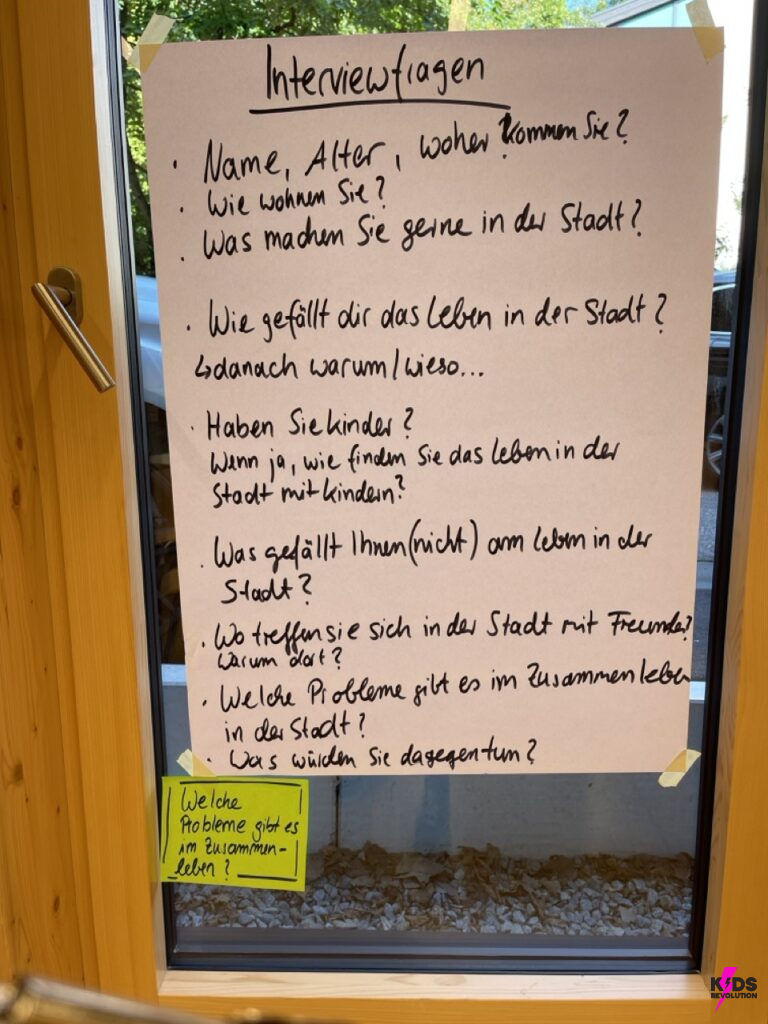 Interviewfragen
· Name, Alter, woher kommen Sie?
· Wie wohnen Sie?
· Was machen Sie gerne in der Stadt?
· Wie gefällt dir das Leben in der Stadt?
↳danach warum/wieso...
· Haben Sie kinder?
Wenn ja, wie finden Sie das Leben in der
Stadt mit kindern?
· Was gefällt Ihnen (nicht) am Leben in der
Stadt?
· Wo treffen sie sich in der Stadt mit Freunde?
Warum dort?
· Welche Probleme gibt es im Zusammenleben
in der Stadt?
· Was würden Sie dagegen tun?
Welche
Probleme gibt es
im Zusammen-
leben?
KIDS
REVOLUTION